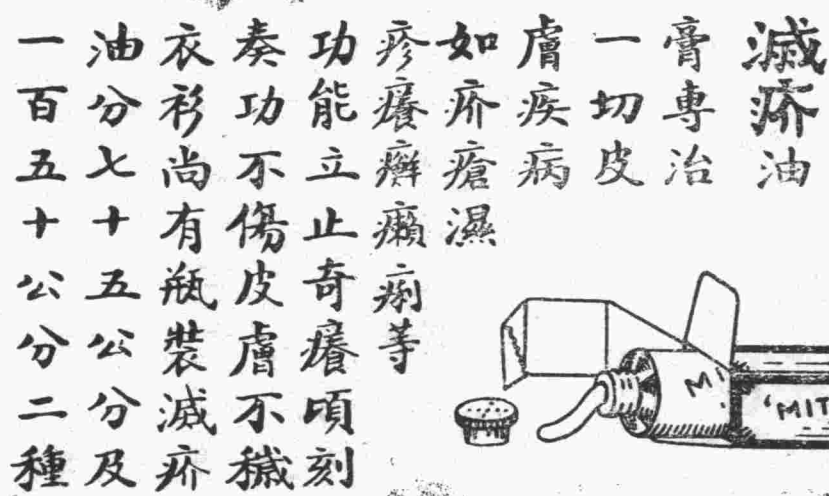 滅疥油
膏專治
一切皮
膚疾病
如疥瘡濕
疹癢癬癩痢等
功能立止奇癢頃刻
奏功不傷皮膚不穢
衣衫尚有瓶裝滅疥
油分七十五公分及
一百五十公分二種
M
'MIT